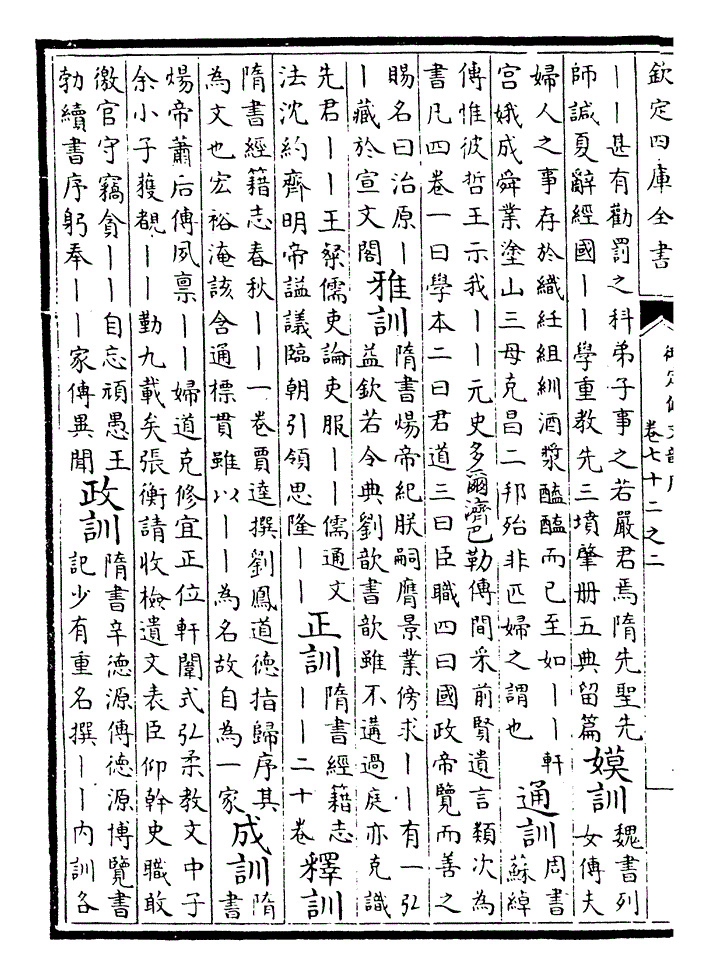 欽定四庫全書
卷七十二之二
丨丨甚有勸罰之科弟子事之若嚴君焉隋先聖先
師誡夏辭經國丨丨學重教先三墳肇册五典留篇
嫫訓
魏書列
女傳夫
婦人之事存於織紝組紃酒漿醯醢而已至如丨丨軒
宮娥成舜業塗山三母克昌二邦殆非匹婦之謂也
通訓
周書
蘇綽
傳惟彼哲王示我丨丨元史多爾濟巴勒傳間采前賢遺言類次為
書凡四卷一曰學本二曰君道三曰臣職四曰國政帝覽而善之
賜名曰治原丨
丨藏於宣文閣
雅訓
隋書煬帝紀朕嗣膺景業傍求丨丨有一弘
益欽若令典劉歆書歆雖不遘過庭亦克識
先君丨丨王粲儒吏論吏服丨丨儒通文
法沈約齊明帝謚議臨朝引領思隆丨丨
正訓
隋書經籍志
丨丨二十卷
釋訓
隋書經籍志春秋丨丨一卷賈逵撰劉鳳道德指歸序其
為文也宏裕淹該含通標貫雖以丨丨為名故自為一家
成訓
隋
書
煬帝蕭后傳夙禀丨丨婦道克修宜正位軒闈式弘柔教文中子
余小子獲覩丨丨勤九載矣張衡請收檢遺文表臣仰幹史職敢
徼官守竊貪丨丨自忘頑愚王
勃續書序躬奉丨丨家傳異聞
政訓
隋書辛德源傳德源博覽書
記少有重名撰丨丨内訓各